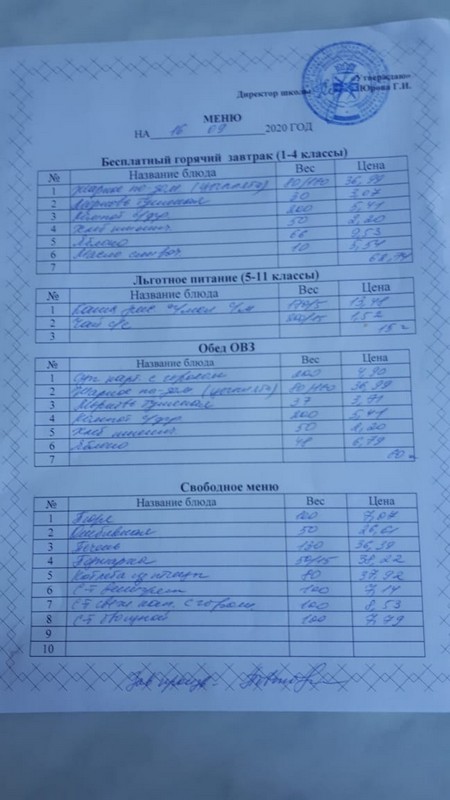 «Утверждаю»
Директор школы Юрова Г.И.
МЕНЮ
НА 16 09 2020 ГОД
Бесплатный горячий завтрак (1-4 классы)
№ Название блюда Вес Цена
1 Жаркое по-дом. 80/180 36,99
2 Морковь тушеная 30 3,07
3 Компот 200 5,41
4 Хлеб пшенич 50 2,20
5 Яблоко 68 9,53
6 Масло сливоч 10 5,54
7
Льготное питание (5-11 классы)
№ Название блюда Вес Цена
1 Каша рис 13,48
2 Чай с/с 200/15 1,52
3 15
Обед ОВЗ
№ Название блюда Вес Цена
1 Суп карт. с горохом 200 4,90
2 Жаркое по-дом 80/180 36,99
3 Морковь тушеная 37 3,71
4 Компот 200 5,41
5 Хлеб пшенич 50 2,20
6 Яблоко 48 6,79
7 60
Свободное меню
№ Название блюда Вес Цена
1 Пюре 100 7,07
2 50 26,61
3 Печень 36,39
4 50/75 38,22
5 Котлета из птицы 80 37,92
6 С-т 100 7,14
7 С-т свеж кап. с горош 100 8,53
8 С-т 100 7,79
9
10
Зав произв-